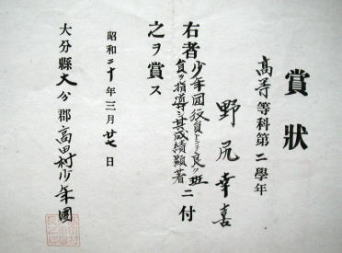 賞狀
高等科第二學年
野尻幸喜
右者少年団役員トシテ良ク班
員ヲ指導シ其成績顯著ニ付
之ヲ賞ス
昭和二十年三月廿七日
大分縣大分郡高田村少年團